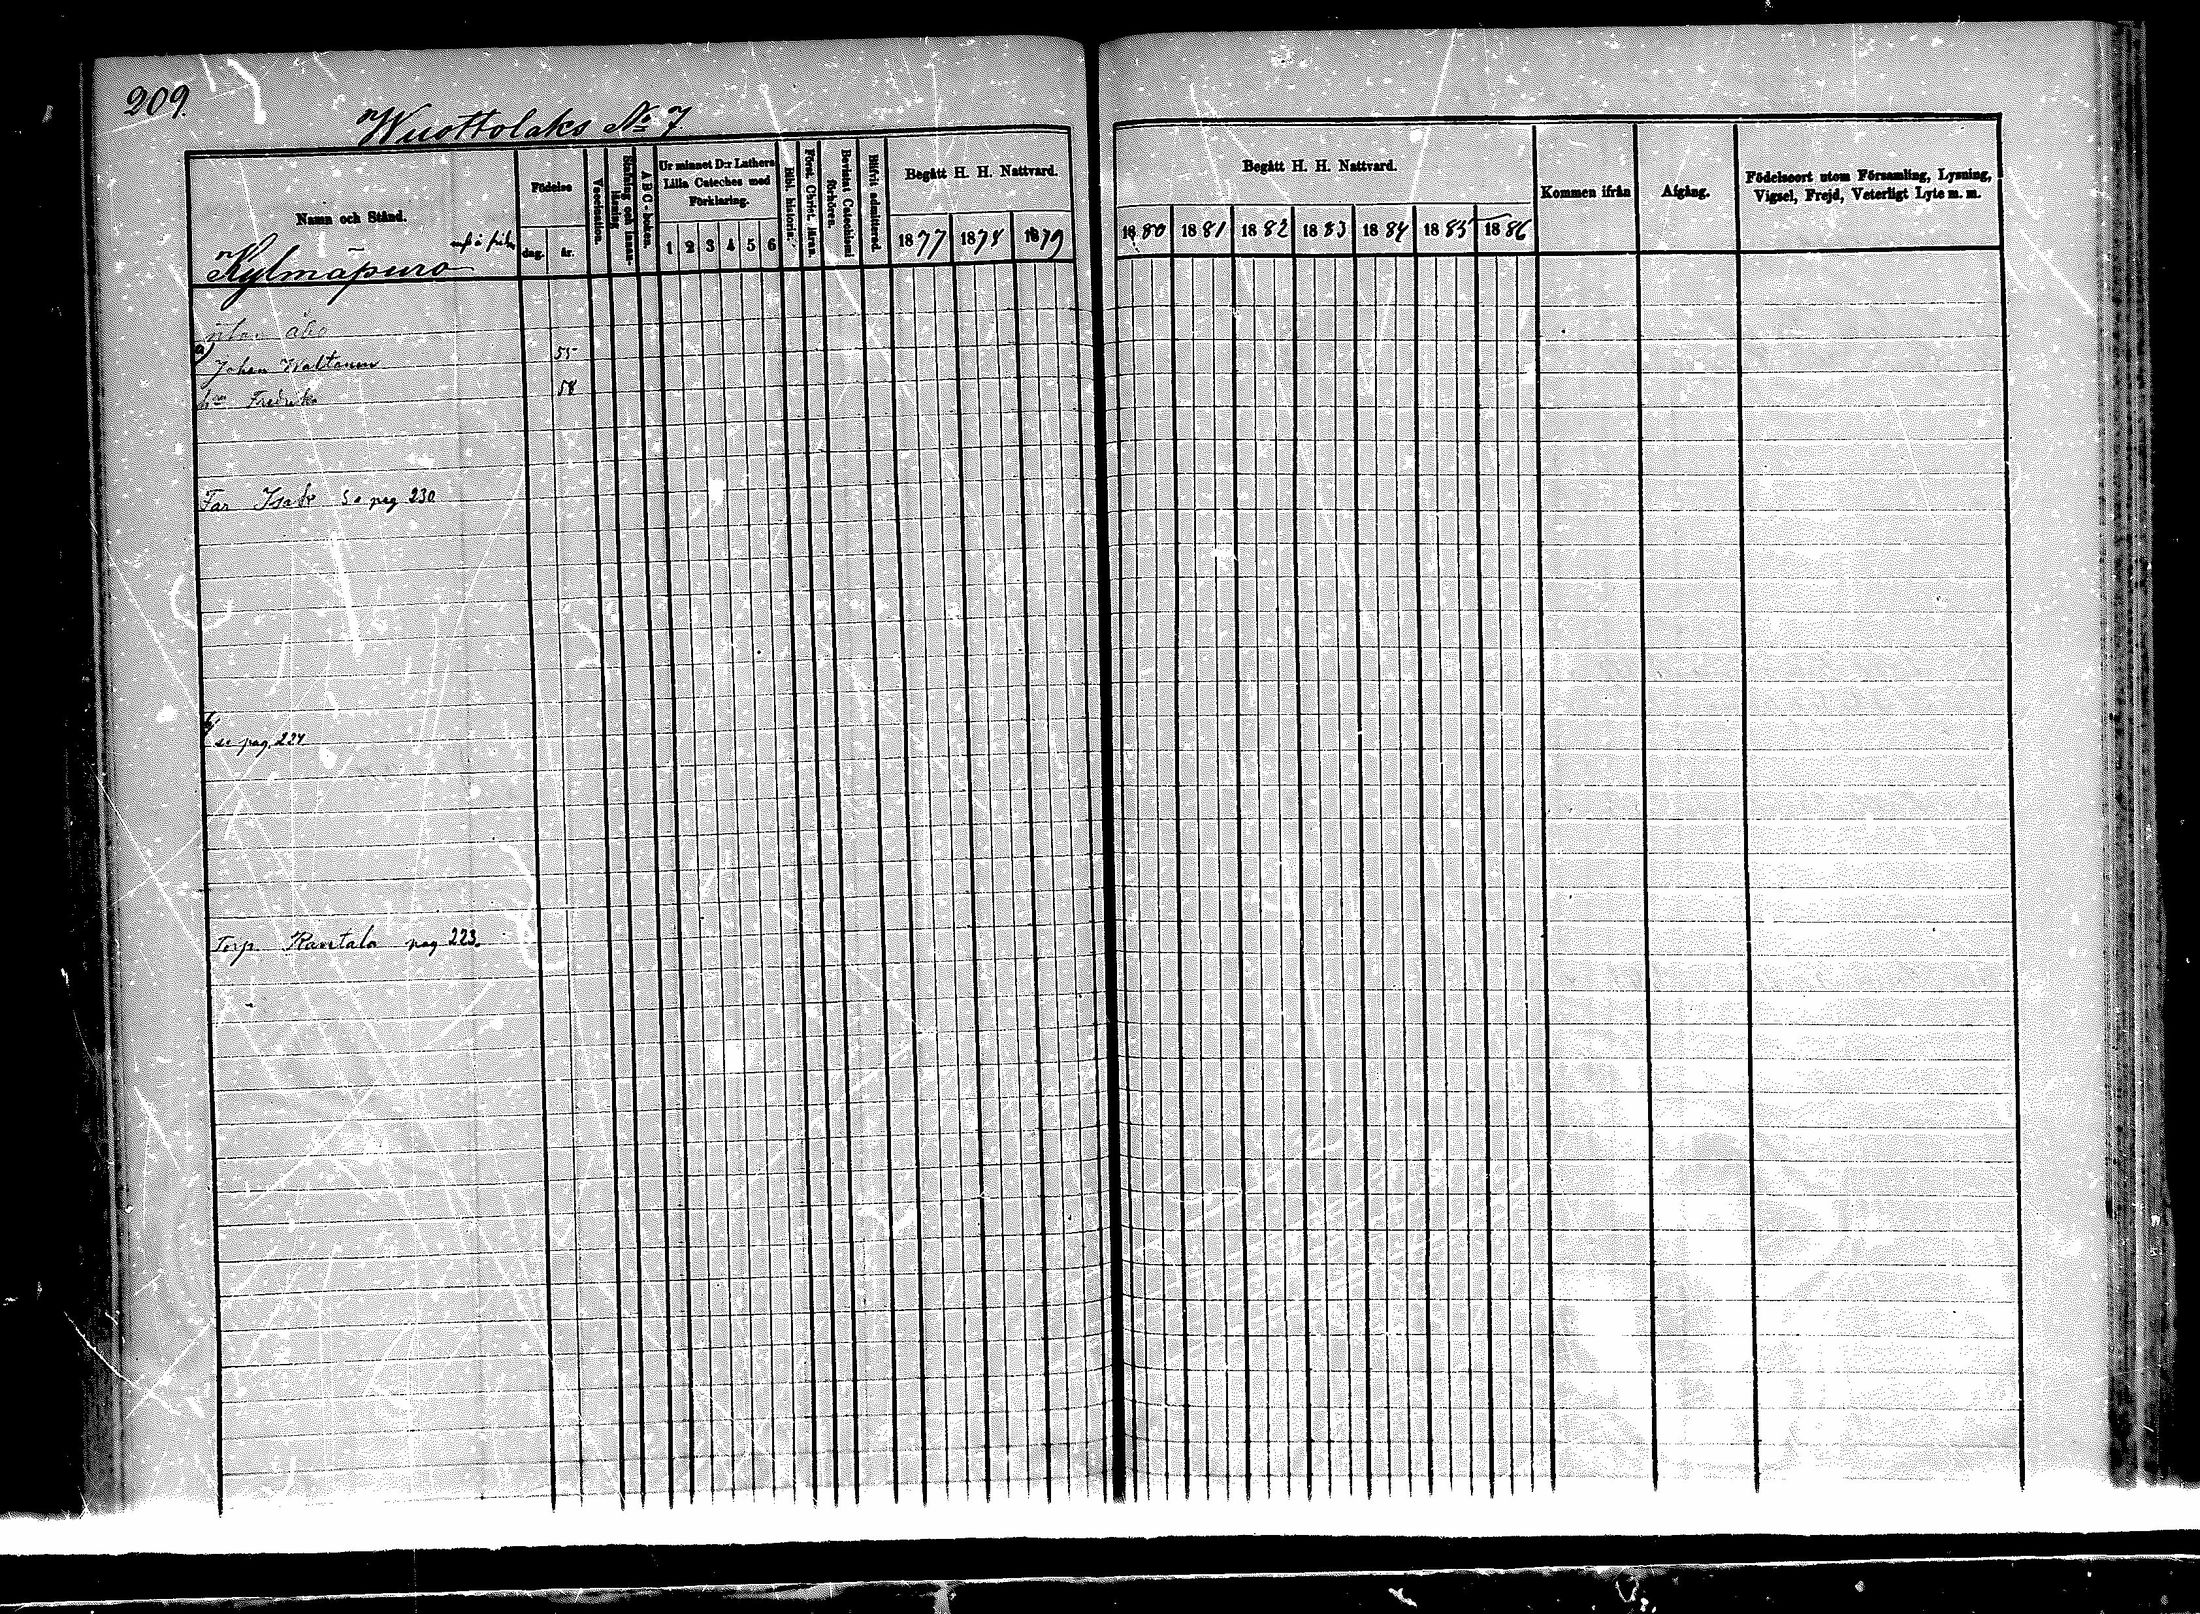 209.
Wuottolaks No 7
Namn och Stånd.
Kylmäpuro
Födelse
dag.
år.
Vaccination.
A B C-boken.
Ur minnet D:r Luthers
Lilla Cateches med
Förklaring.
1 2 3 4 5 6
Bibl. historia.
Först. Christ. läran.
Bevistat Catechismi
förhören.
Blifvit admitterad
Begått H. H. Nattvard.
1877 1878 1879
Begått H. H. Nattvard.
1880 1881 1882 1883 1884 1885 1886
Kommen ifrån
Afgång.
Födelseort utom Församling, Lysning,
Vigsel, Frejd, Veterligt Lyte m. m.
utan åbo
a)
Johan Waltanen 55
Fredrika 58
Far Isak Se pag 230
b)
se pag. 224
Torp. Rantala pag 223.